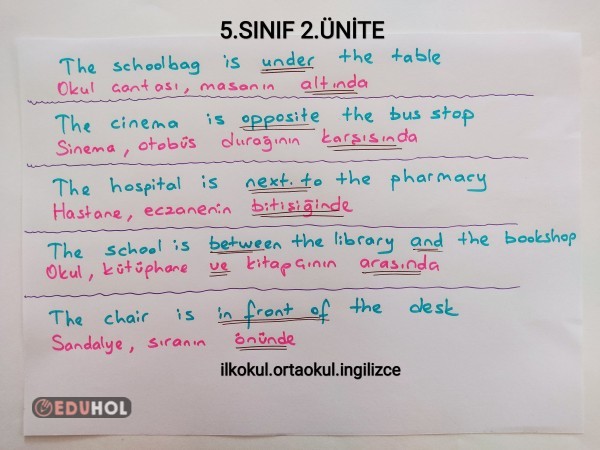 5.SINIF 2.ÜNİTE
The schoolbag is under the table
Okul çantası, masanın altında
The cinema is opposite the bus stop
Sinema, otobüs durağının karşısında
The hospital is next to the pharmacy
Hastane, eczanenin bitişiğinde
The school is between the library and the bookshop
Okul, kütüphane ve kitapçının arasında
The chair is in front of the desk
Sandalye, sıranın önünde
ilkokul.ortaokul.ingilizce
EDUHOL